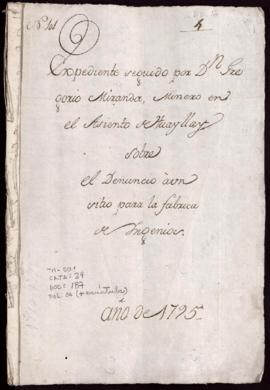 4
Expediente seguido por Dn. Gre
gorio Miranda, Minero en
el Asiento de Huayllay
sobre
el Denuncio àun
sitio para la fabrica
de Ingenios.
CAJA: 29
DOC: 187
año de 1795